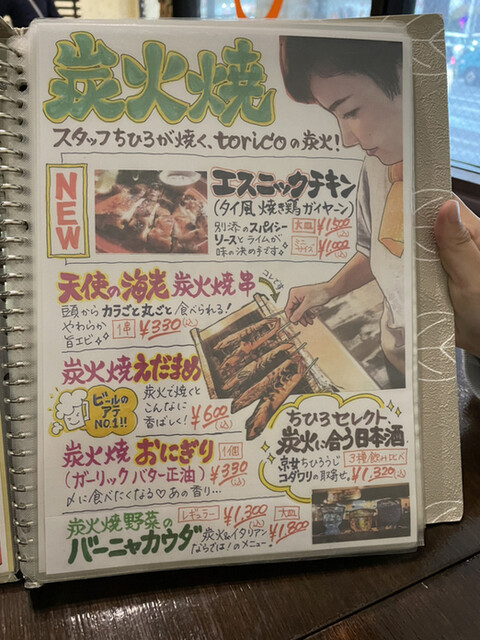 炭火焼
スタッフちひろが焼く、toricoの炭火!
NEW
エスニックチキン
(タイ風焼き鶏ガイヤーン)
別添のスパイシー
ソースとライムが
味の決め手です。
大皿 ¥1,500(込)
ミニサイズ ¥1,000(込)
天使の海老 炭火焼串
コレです
頭からカラごと丸ごと食べられる!
やわらか
旨エビ
1串 ¥330(込)
炭火焼えだまめ
ビールの
アテ
NO.1!!
炭火で焼くと
こんなに
香ばしく!
¥600(込)
炭火焼おにぎり
(ガーリックバター正油)
1個
¥330(込)
〆に食べたくなる♡あの香り...
ちひろセレクト
炭火に合う日本酒
京女ちひろうじ
コダワリの取寄せ。
3種飲み比べ
¥1,320(込)
炭火焼野菜の
バーニャカウダ
レギュラー ¥1,300(込)
大皿 ¥1,800(込)
炭火&イタリアン
ならでは!のメニュー!